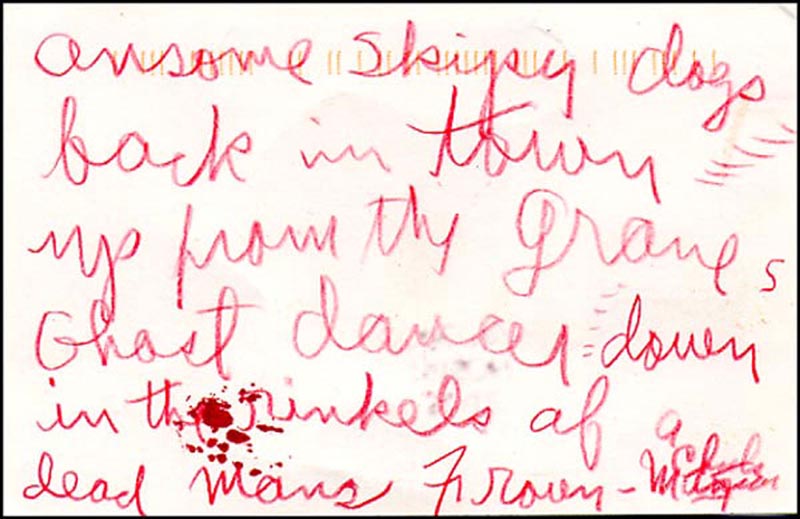 ansome skipy dogs
back in town
up from thy Graves
Ghost dancer down
in the rinkels af a
dead mans Frown -